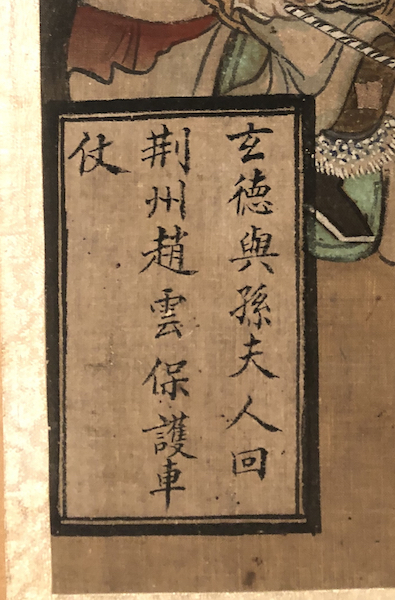 玄德與孫夫人回
荆州趙雲保護車
仗